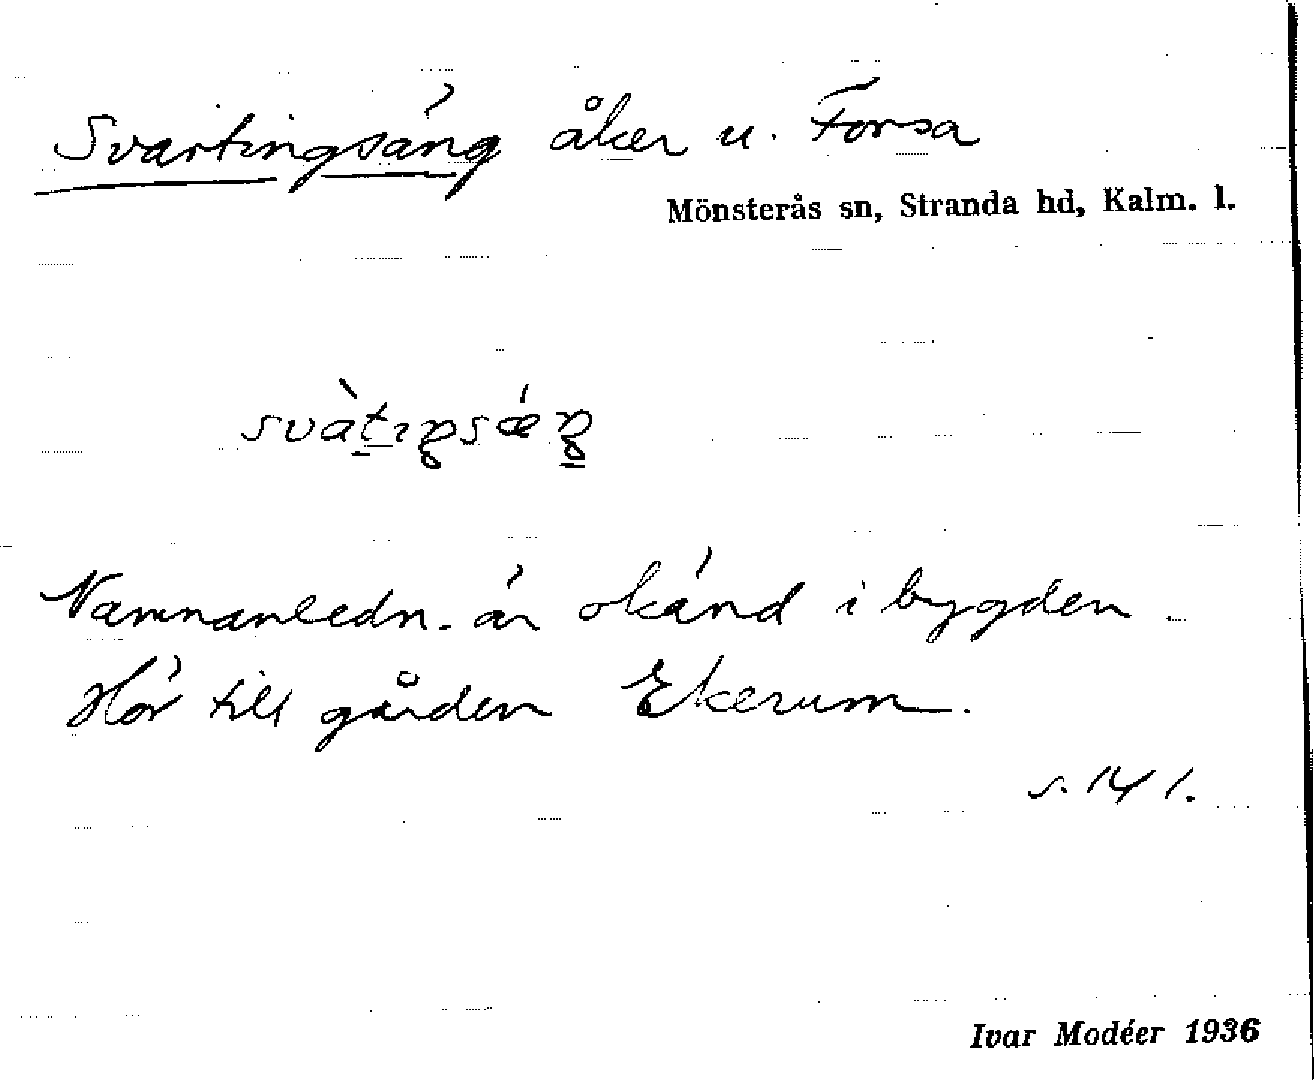 Svartingsäng åker u. Forsa
Mönsterås sn, Stranda hd, Kalm. l.
svàtıŋsǽŋ
Namnanledn. är okänd i bygden.
Hör till gården Ekerum.
s. 141.
Ivar Modéer 1936